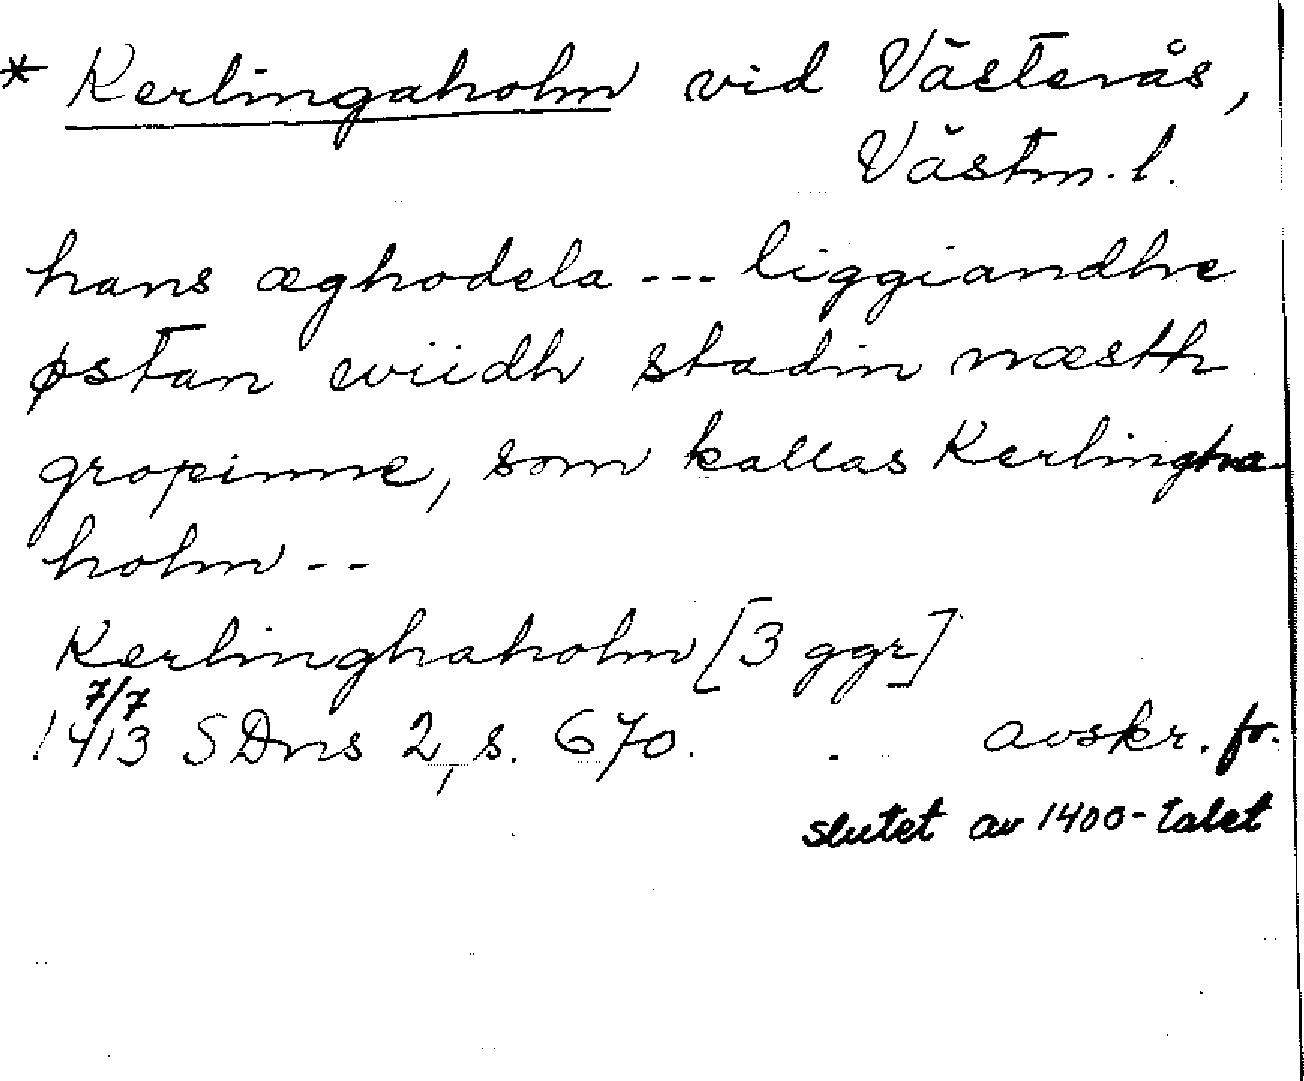 * Kerlingaholm vid Västerås,
Västm. l.
hans æghodela --- liggiandhe
østan wiidh stadin næsth
gropinne, som kallas Kerlingha-
holm --
Kerlinghaholm [3 ggr]
7/7
1413 SDns 2, s. 670. avskr. fr.
slutet av 1400-talet